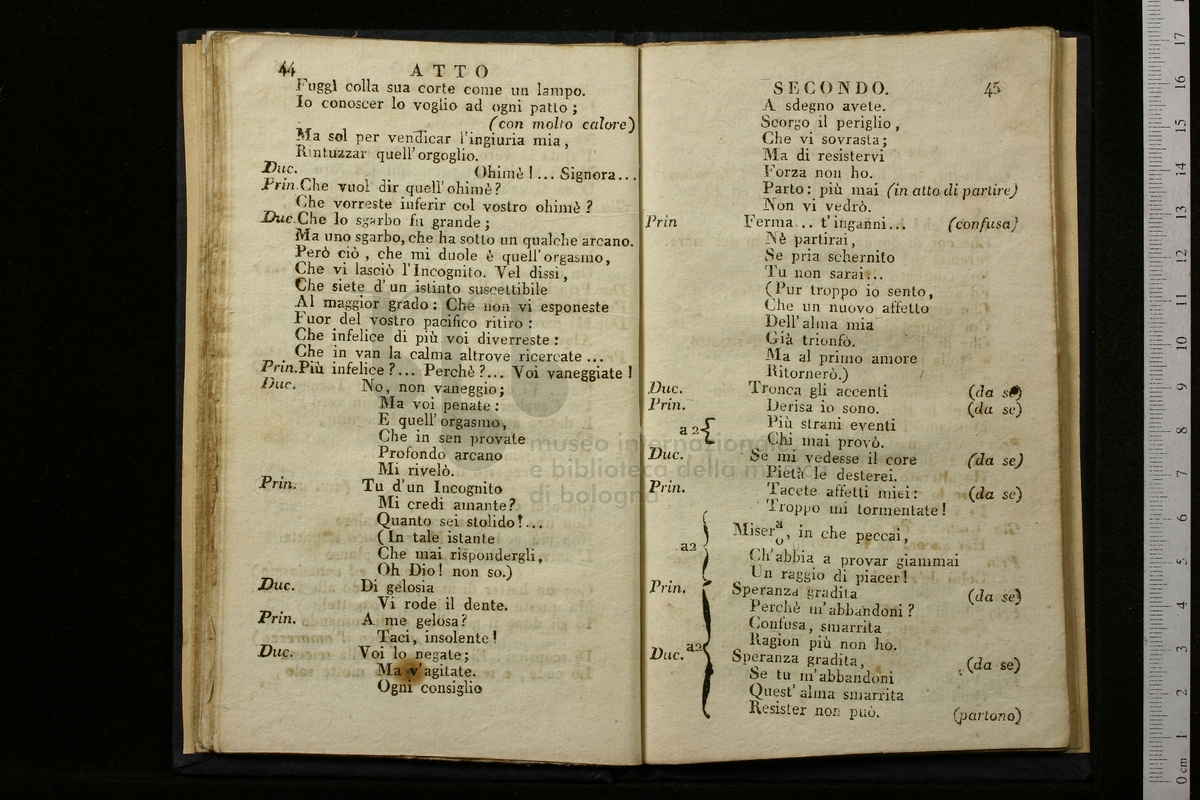 44 ATTO
Fuggì colla sua corte come un lampo.
Io conoscer lo voglio ad ogni patto;
(con molto calore)
Ma sol per vendicar l'ingiuria mia,
Rintuzzar quell'orgoglio.
Duc. Ohimè!... Signora...
Prin. Che vuol dir quell'ohimè?
Che vorreste inferir col vostro ohimè?
Duc. Che lo sgarbo fu grande;
Ma uno sgarbo, che ha sotto un qualche arcano.
Però ciò, che mi duole è quell'orgasmo,
Che vi lasciò l'Incognito. Vel dissi,
Che siete d'un istinto suscettibile
Al maggior grado: Che non vi esponeste
Fuor del vostro pacifico ritiro:
Che infelice di più voi diverreste:
Che in van la calma altrove ricercate...
Prin. Più infelice?... Perchè?... Voi vaneggiate!
Duc. No, non vaneggio;
Ma voi penate:
E quell'orgasmo,
Che in sen provate
Profondo arcano
Mi rivelò.
Prin. Tu d'un Incognito
Mi credi amante?
Quanto sei stolido!...
(In tale istante
Che mai rispondergli,
Oh Dio! non so.)
Duc. Di gelosia
Vi rode il dente.
Prin. A me gelosa?
Taci, insolente!
Duc. Voi lo negate;
Ma v'agitate.
Ogni consiglio
SECONDO. 45
A sdegno avete.
Scorgo il periglio,
Che vi sovrasta;
Ma di resistervi
Forza non ho.
Parto: più mai (in atto di partire)
Non vi vedrò.
Prin Ferma... t'inganni... (confusa)
Nè partirai,
Se pria schernito
Tu non sarai...
(Pur troppo io sento,
Che un nuovo affetto
Dell'alma mia
Già trionfò.
Ma al primo amore
Ritornerò.)
Duc. Tronca gli accenti (da se)
Prin. Derisa io sono. (da se)
a 2 { Più strani eventi
Chi mai provò.
Duc. Se mi vedesse il core (da se)
Pietà le desterei.
Prin. Tacete affetti miei: (da se)
Troppo mi tormentate!
a2 { Miser a/o, in che peccai,
Ch'abbia a provar giammai
Un raggio di piacer!
Prin. Speranza gradita (da se)
Perchè m'abbandoni?
Confusa, smarrita
Ragion più non ho.
a2 {
Duc. Speranza gradita, (da se)
Se tu m'abbandoni
Quest'alma smarrita
Resister non può. (partono)
museo internazionale
e biblioteca della musica
di bologna
0 cm 1 2 3 4 5 6 7 8 9 10 11 12 13 14 15 16 17